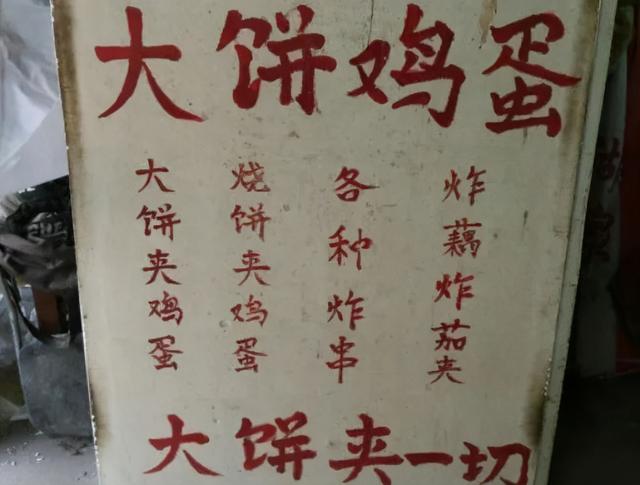 大饼鸡蛋
大饼夹鸡蛋
烧饼夹鸡蛋
各种炸串
炸藕炸茄夹
大饼夹一切